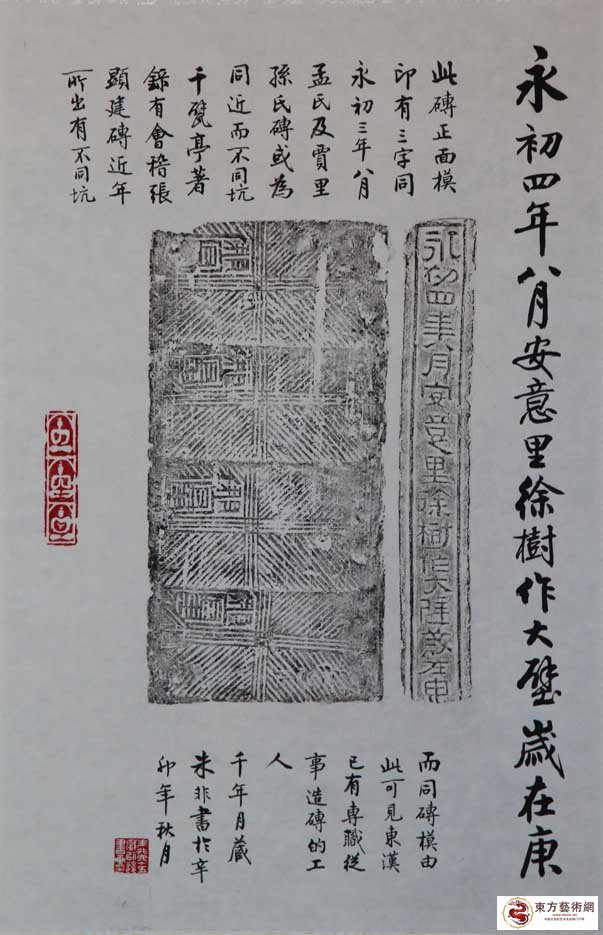 永初四年八月安意里徐樹作大壁歲在庚
此磚正面模
印有三字同
永初三年八月
孟氏及賈里
孫氏磚或為
同近而不同坑
千甓亭著
錄有會稽張
顯建磚近年
所出有不同坑
永初四年八月安意里徐樹作大壁歲在庚
而同磚模由
此可見東漢
已有專職從
事造磚的工
人
千年月藏
朱非書於辛
卯年秋月
東方藝術網